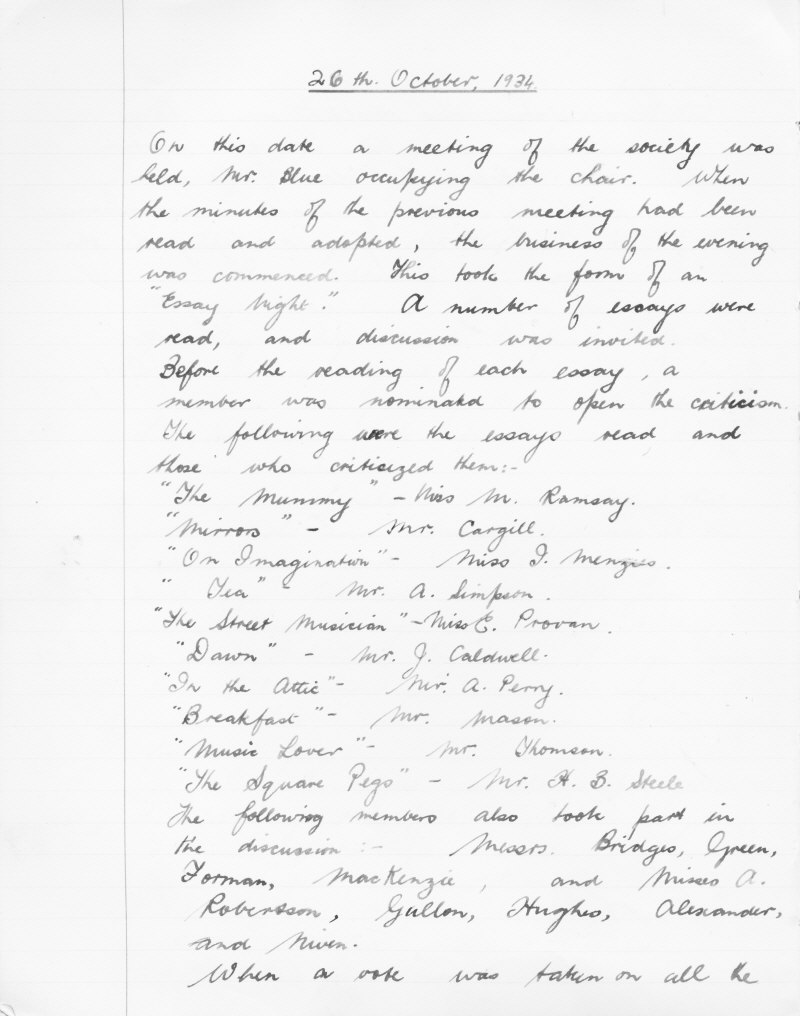 26th. October, 1934.
On this date a meeting of the society was
held, Mr. Blue occupying the chair. When
the minutes of the previous meeting had been
read and adopted, the business of the evening
was commenced. This took the form of an
"Essay Night." A number of essays were
read, and discussion was invited.
Before the reading of each essay, a
member was nominated to open the criticism.
The following were the essays read and
those who criticized them:-
"The Mummy" - Miss M. Ramsay.
"Mirrors" - Mr. Cargill.
"On Imagination" - Miss I. Menzies.
"Tea" - Mr. A. Simpson.
"The Street Musician" - Miss E. Provan.
"Dawn" - Mr. J. Caldwell.
"In the Attic" - Mr. A. Perry.
"Breakfast" - Mr. Mason.
"Music Lover" - Mr. Thomson.
"The Square Pegs" - Mr. H. B. Steele
The following members also took part in
the discussion :- Messrs. Bridges, Green,
Forman, MacKenzie, and Misses A.
Robertson, Gullon, Hughes, Alexander,
and Niven.
When a vote was taken on all the